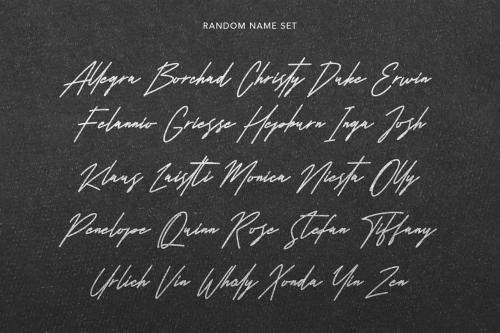 RANDOM NAME SET
Allegra Borchad Christy Duke Erwin
Felannio Griesse Hepburn Inga Josh
Klaus Luistli Monica Niesta Olly
Penelope Quinn Rose Stefan Tiffany
Urlich Vin Whaly Xonda Yin Zen